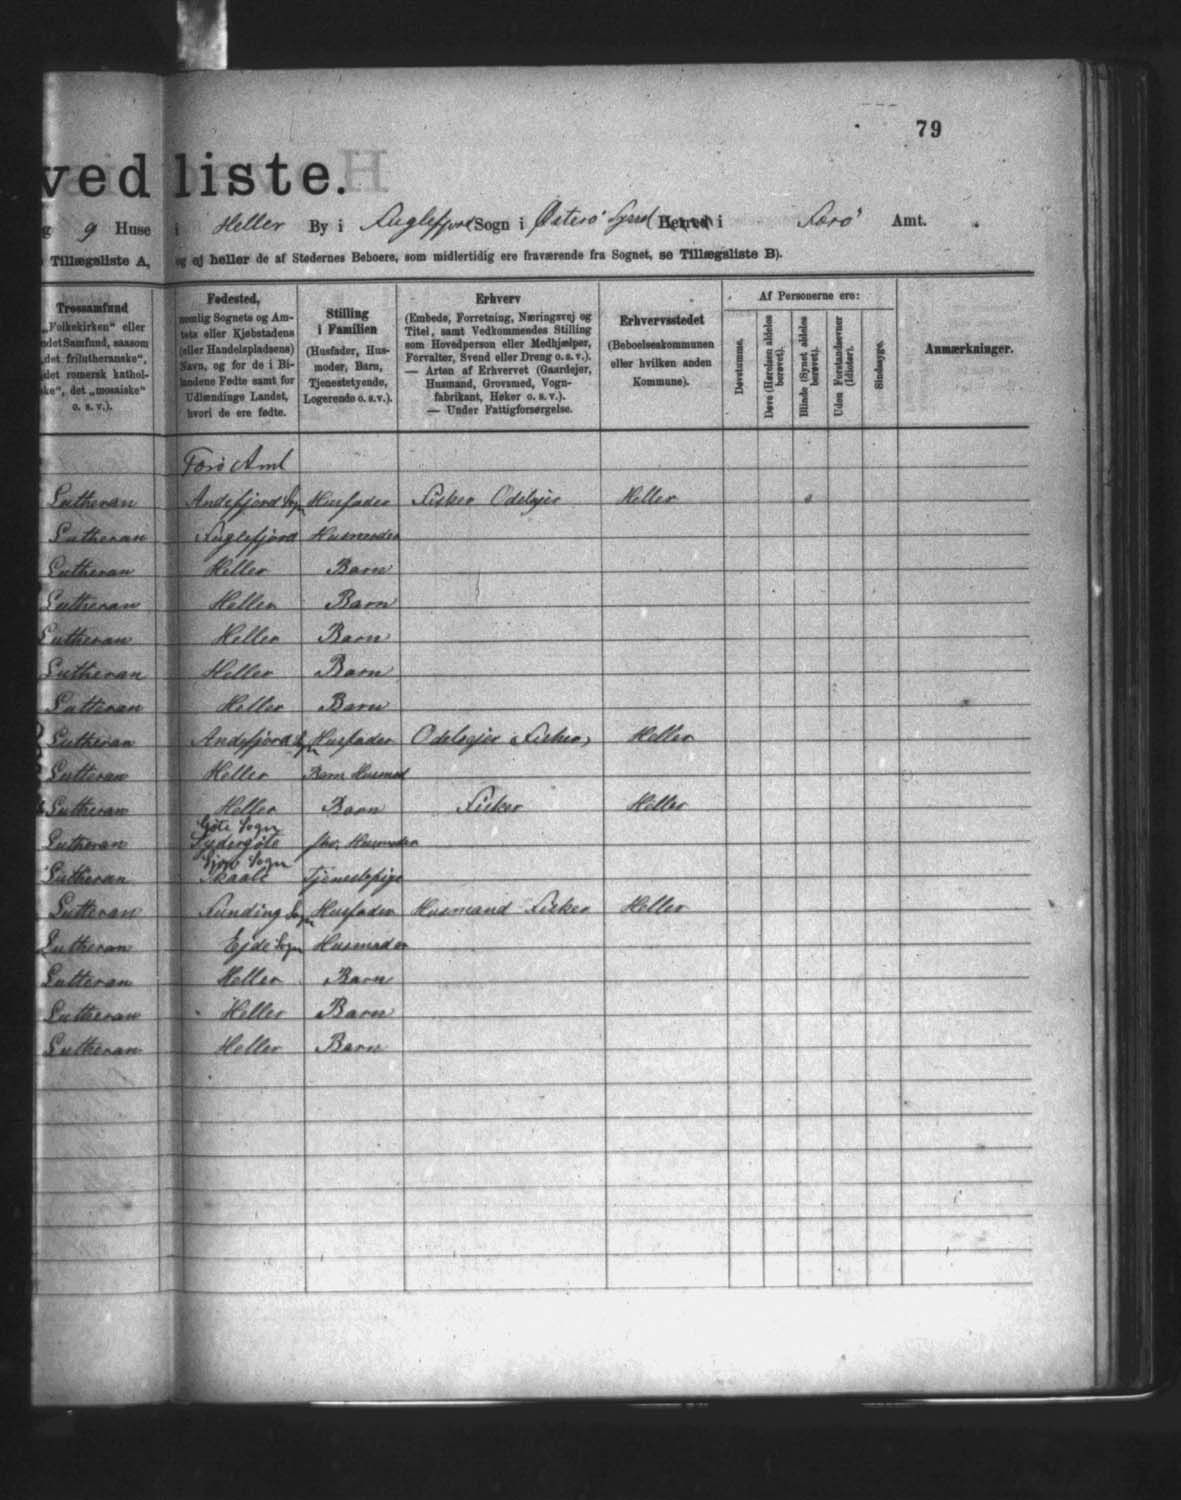 79
vedliste.
g 9 Huse i Heller By i Fuglefjord Sogn i Østerø Syssel Herred i Færø Amt.
Tillægsliste A, og ej heller de af Stedernes Beboere, som midlertidig ere fraværende fra Sognet, se Tillægsliste B).
Trossamfund
„Folkekirken“ eller
ndet Samfund, saasom
„det frilutheranske“,
det romersk kathol-
ke“, det „mosaiske“
o. s. v.).
Fødested,
nemlig Sognets og Am-
tets eller Kjøbstadens
(eller Handelspladsens)
Navn, og for de i Bi-
landene Fødte samt for
Udlændinge Landet,
hvori de ere fødte.
Stilling
i Familien
(Husfader, Hus-
moder, Barn,
Tjenestetyende,
Logerende o. s. v.).
Erhverv
(Embede, Forretning, Næringsvej og
Titel, samt Vedkommendes Stilling
som Hovedperson eller Medhjælper,
Forvalter, Svend eller Dreng o. s. v.).
— Arten af Erhvervet (Gaardejer,
Husmand, Grovsmed, Vogn-
fabrikant, Høker o. s. v.).
— Under Fattigforsørgelse.
Erhvervsstedet
(Beboelseskommunen
eller hvilken anden
Kommune).
Af Personerne ere:
Døvstumme.
Døve (Hørelsen aldeles
berøvet).
Blinde (Synet aldeles
berøvet).
Uden Forstandsevner
(Idioter).
Sindssyge.
Anmærkninger.
Færø Amt
Lutheran Andefjord Sogn Husfader Fisker Odelsejer Heller
Lutheran Fuglefjord Husmoder
Lutheran Heller Barn
Lutheran Heller Barn
Lutheran Heller Barn
Lutheran Heller Barn
Lutheran Heller Barn
Lutheran Andefjord Sogn Husfader Odelsejer Fisker Heller
Lutheran Heller Barn Husmod
Lutheran Heller Barn Fisker Heller
Gøte Sogn
Lutheran Sydergøte Husmoder
Sogn
Lutheran Skaale Tjenestepige
Lutheran Funding Sogn Husfader Husmand Fisker Heller
Lutheran Ejde Sogn Husmoder
Lutheran Heller Barn
Lutheran Heller Barn
Lutheran Heller Barn